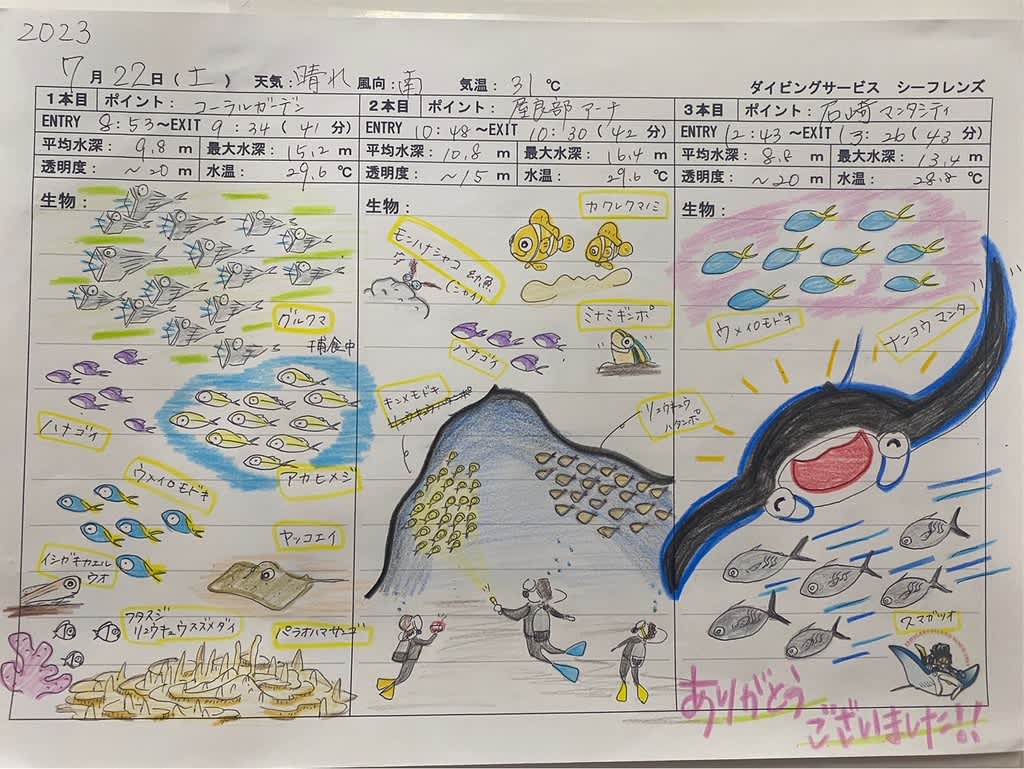 2023
7月22日(土) 天気:晴れ 風向:南 気温:31℃ ダイビングサービス シーフレンズ
1本目 ポイント: コーラルガーデン
ENTRY 8:53~EXIT 9:34(41分)
平均水深: 9.8 m 最大水深: 15.2 m
透明度: ~20 m 水温: 29.6 ℃
生物:
グルクマ
捕食中
ハナゴイ
アカヒメジ
ウメイロモドキ
ヤッコエイ
イシガキカエル
ウオ
フタスジ
リュウキュウスズメダイ
パラオハマサンゴ
2本目 ポイント: 屋良部アーチ
ENTRY 10:48~EXIT 10:30(42分)
平均水深: 10.8 m 最大水深: 16.4 m
透明度: ~15 m 水温: 29.6 ℃
生物:
カクレクマノミ
モンハナシャコ 幼魚
ミナミギンポ
ハナゴイ
キンメモドキ
リュウキュウ
ハタンポ
3本目 ポイント: 石崎マンタシティ
ENTRY 12:43~EXIT 13:26(43分)
平均水深: 8.8 m 最大水深: 13.4 m
透明度: ~20 m 水温: 28.8 ℃
生物:
ウメイロモドキ
ナンヨウマンタ
スマガツオ
ありがとう
ございました!!